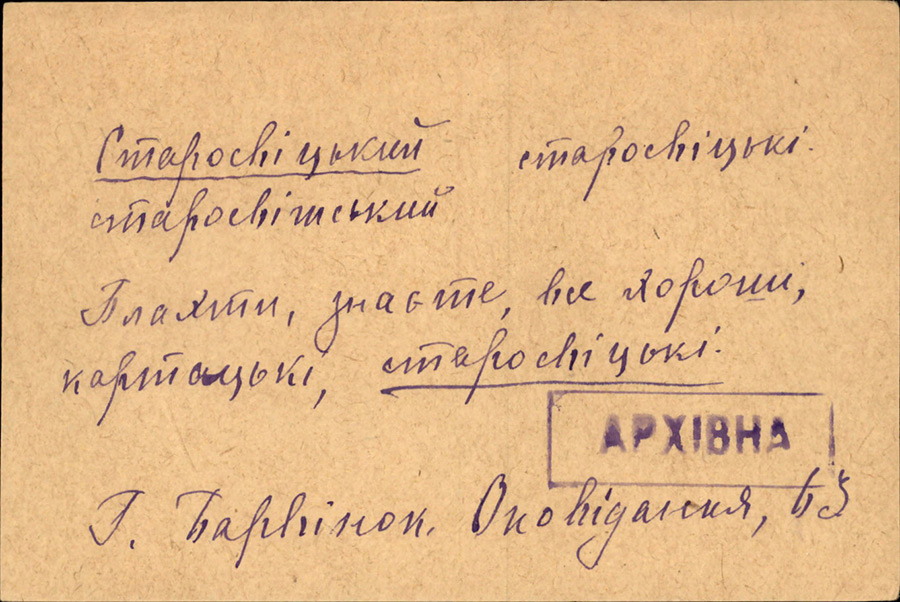 Старосвіцький старосвіцькі.
старосвітський
Плахти, знаєте, все хороші,
картацькі, старосвіцькі.
АРХІВНА
Г. Барвінок. Оповідання, 63